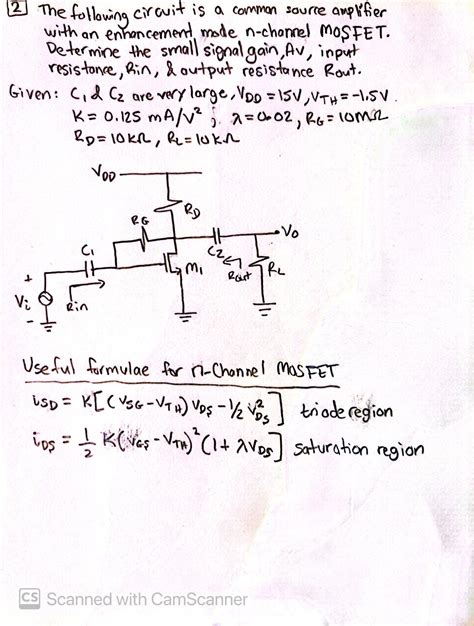 2 The following circuit is a common source amplifier
with an enhancement mode n-channel MOSFET.
Determine the small signal gain, Av, input
resistance, Rin, & output resistance Rout.
Given: C1 & C2 are very large, VDD = 15V, VTH = -1.5V.
K = 0.125 mA/V² ; λ = 0.02, RG = 10MΩ
RD = 10KΩ, RL = 10KΩ
VDD
RD
RG
Vo
C1
C2
M1
Rout
RL
+
Vi
-
Rin
Useful formulae for n-Channel MOSFET
iSD = K[(VSG-VTH)VDS - 1/2 V²DS] triode region
iDS = 1/2 K(VGS-VTH)²(1+λVDS] saturation region
CS Scanned with CamScanner